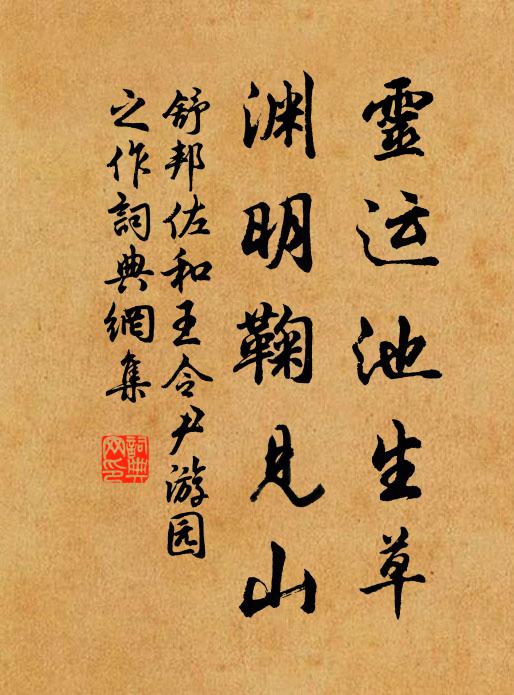 靈运池生草
渊明鞠見山
舒邦佐和王令尹游园
之作詞典網集
詞典网印